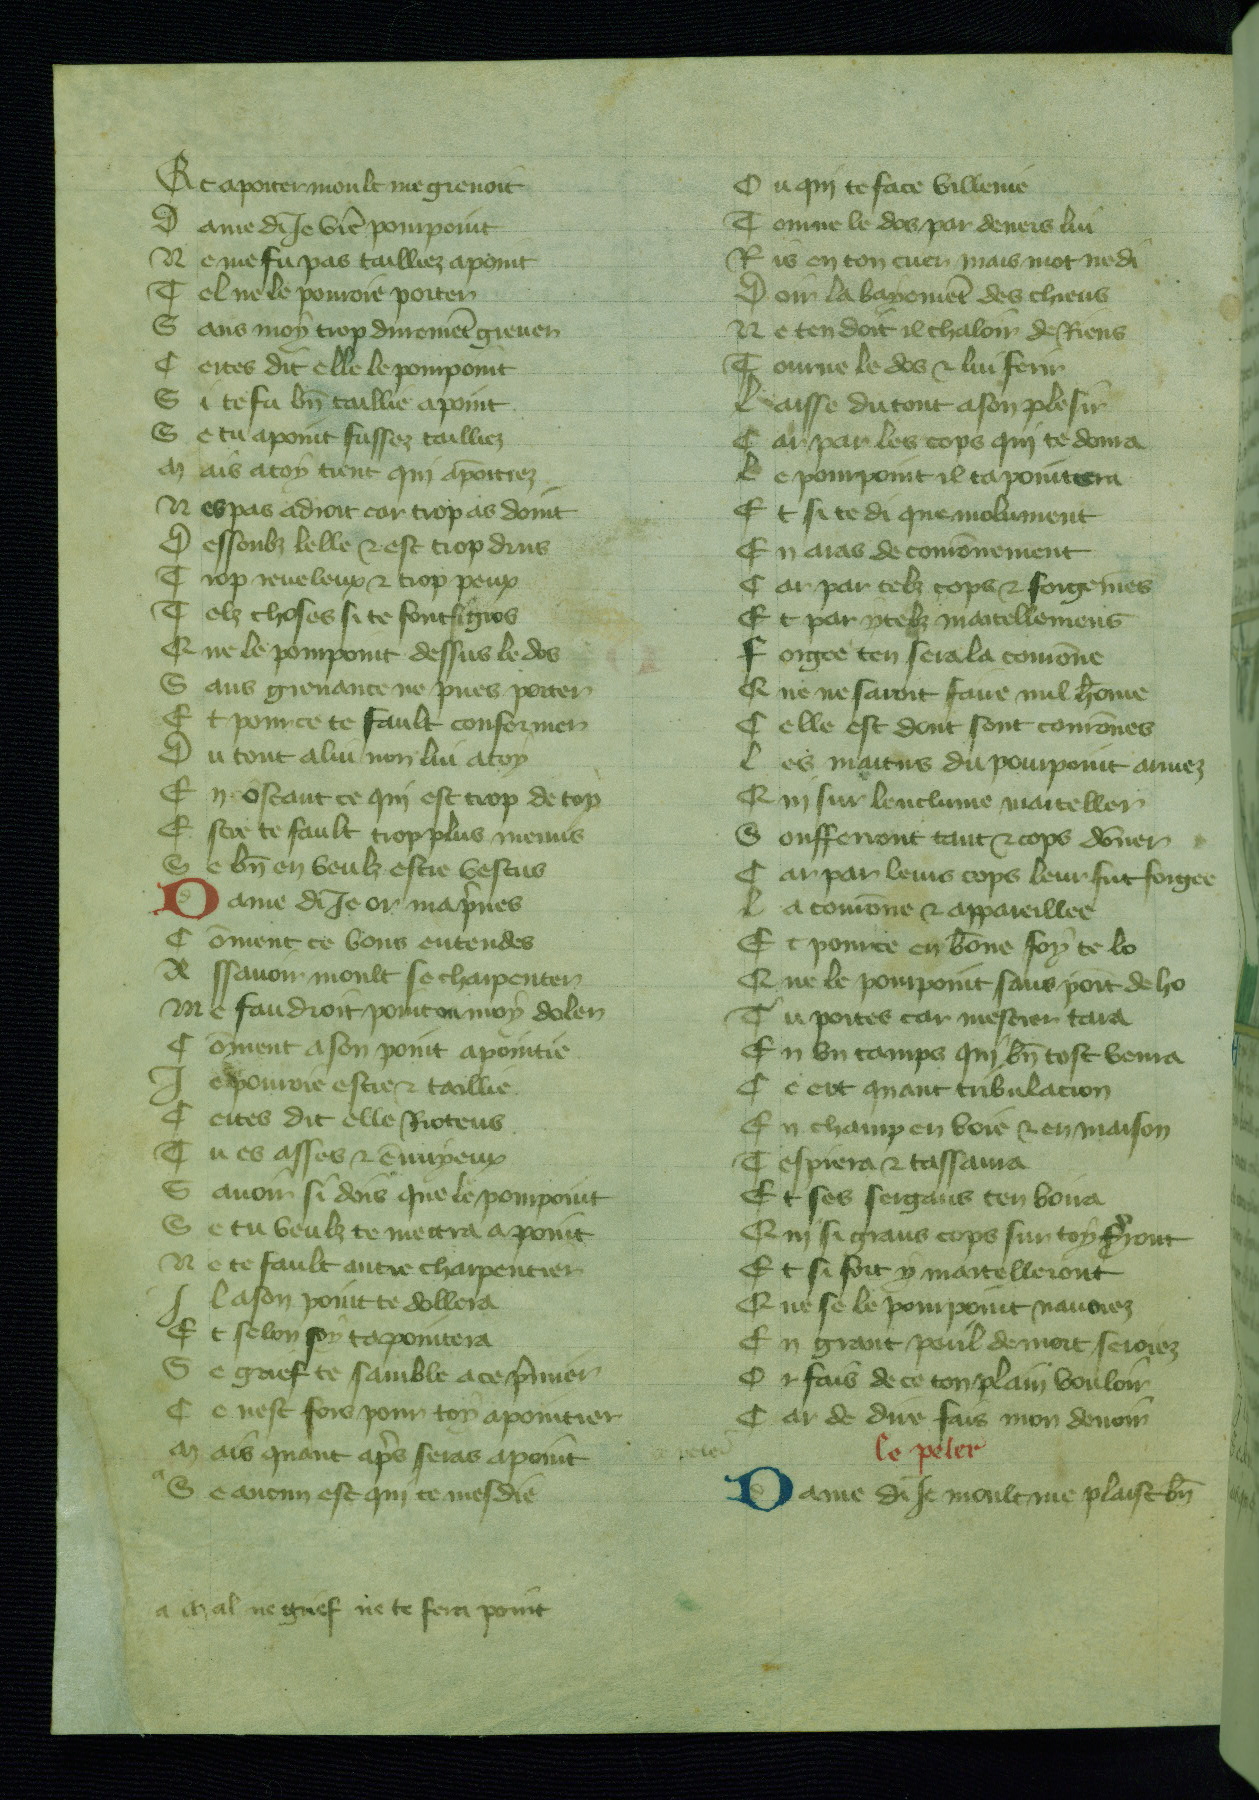 Et a porter moult me grevoit
Dame di Je vīē pourpoint
Ne me fu pas tailliez a point
Tel ne le pourroie porter
Sans moy trop duremēt grever
Certes dit elle le pourpoint
Si te fu bn̄ taillie a point
Se tu a point fussez tailliez
Mais a toy tient qui apoītiez
Nes pas a droit car trop as doint
Dessoubz lelle ⁊ est trop drus
Trop reveleux ⁊ trop peux
Telz choses si te font si gros
Que le pourpoint dessus le dos
Sans grevance ne pues porter
Et pour ce te fault confermer
Du tout a lui non lui a toy
En ostant ce qui est trop de toy
Estre te fault trop plus menus
Se bn̄ en veulz estre vestus
Dame di Je or mapr̄nes
Cōment ce vous entendes
Assavoir moult se charpenter
Me faudroit point ou moy doler
Cōment a son point apointie
Je pourroie estre ⁊ taillie
Certes dit elle Rioteus
Tu es asses ⁊ ēnuyeux
Savoir si dois que le pourpoint
Se tu veulz te mettra a point
Ne te fault autre charpentier
Il a son point te dollera
Et selon soy tapointera
Se grief te samble a ce pr̄mier
Ce nest fors pour toy apointier
Mais quant apr̄s seras a point
a Se aucun est qui te mesdie
a Mal ne grief ne te fera point
Ou qui te face villenie
Tourne le dos par devers lui
Ris en ton cuer mais mot ne di
Doir la bayemēt des chiens
Ne ten doit il chaloir de Riens
Tourne le dos ⁊ lui ferir
Laisse du tout a son plesir
Car par les cops qui te donra
Le pourpoint il tapointtera
Et si te di que molument
En aras de courōnement
Car par telz cops ⁊ forgemēs
Et par ytelz martellemens
Forgee ten sera la courōne
Que ne savroit faire nul hōme
Celle est dont sont courōnes
Les martirs du pourpoint armez
Qui sur lenclume marteller
Souffrirent tant ⁊ cops dōner
Car par leurs cops leur fut forgee
La courōne ⁊ appareillee
Et pour ce en bōne foy te lo
Que le pourpoint sans poīt de ho
Tu portes car mestier tara
En un tamps qui bn̄ tost venra
Ce ert quant tribulacion
En champ en voie ⁊ en maison
Tespiera ⁊ tassaura
Et ses sergans ten voira
Qui si grans cops sur toy fr̄ront
Et si fort y martelleront
Que se le pourpoint navoiez
En grant peril de mort seroiez
Or fais de ce ton plain vouloir
Car de dire fais mon devoir
le peler
Dame di Je moult me plaist bn̄